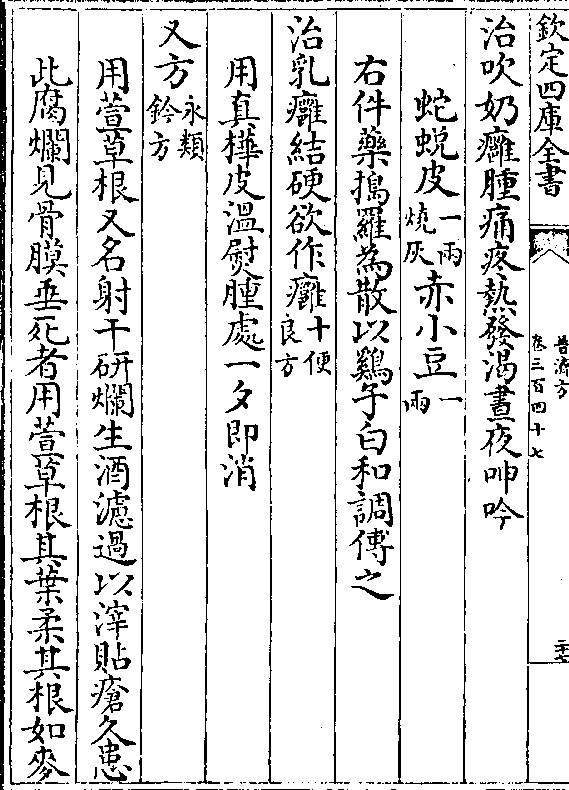 欽定四庫全書
普濟方
卷三百四十七
二十七
治吹奶癰腫痛疼熱發渴晝夜呻吟
蛇蛻皮一兩燒灰赤小豆一兩
右件藥搗羅為散以鷄子白和調傅之
治乳癰結硬欲作癰十便良方
用真樺皮溫熨腫處一夕即消
又方永類鈐方
用萱草根又名射干研爛生酒濾過以滓貼瘡久患
此腐爛見骨膜垂死者用萱草根其葉柔其根如麥